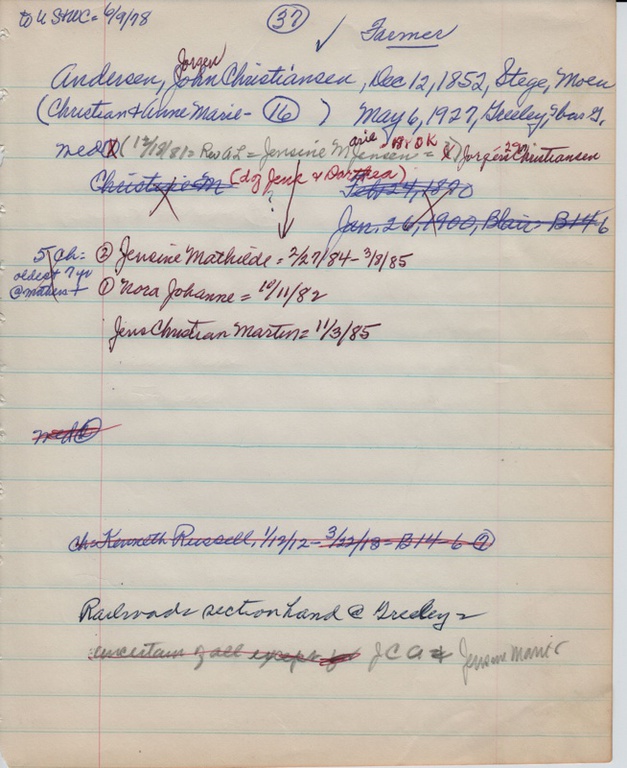 to U S + WC = 6/9/78
37
✓ Farmer
Jorgen
Andersen, John Christiansen, Dec 12, 1852, Stege, Moen
(Christian & Anne Marie - 16) May 6, 1927, Greeley,
med (12/18/81 = Rev A L = Jensine Marie Jensen = 18 & DK Jorgen Christiansen
29
Christepie M (dg Jens & Dorthea) Feb 24, 1890
?
Jan. 26, 1900, Blair B14-6
5 ch: ② Jensine Mathilde = 2/27/84 - 3/8/85
oldest 7 yr
@ mothers + ① Nora Johanne = 10/11/82
Jens Christian Martin = 11/3/85
med ②
ch: Kenneth Russell, 1/12/12 - 3/22/18 - B14-6
Railroads section hand @ Greeley =
uncertain of all except for J C A + Jensine Marie